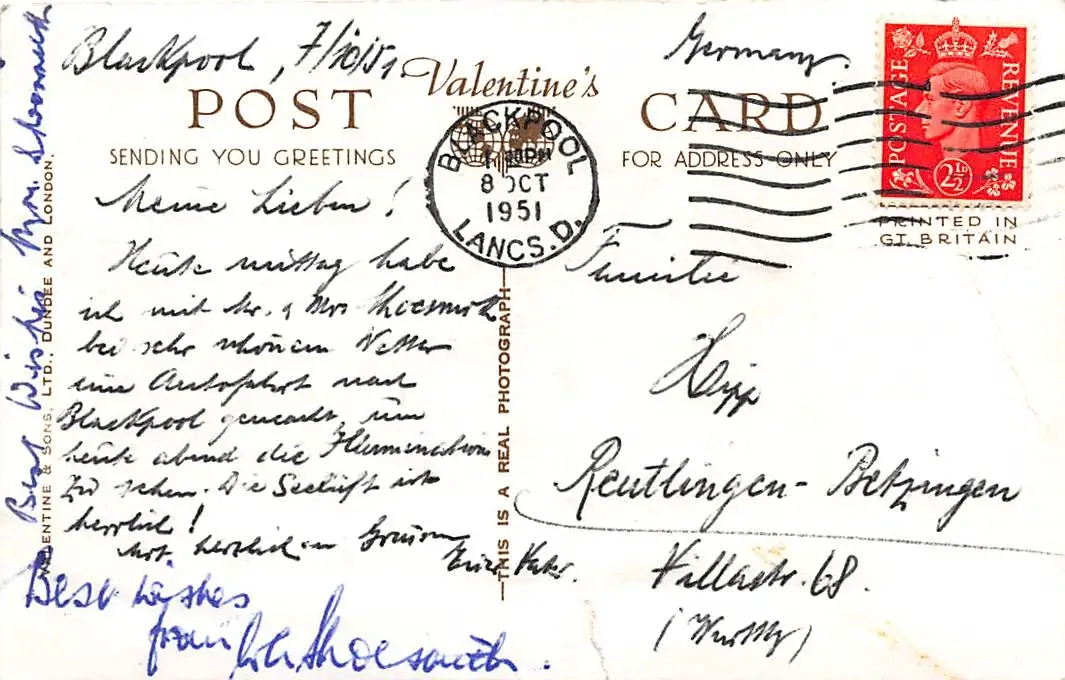 Blackpool, 7/10/51
Germany.
Valentine's
POST CARD
SENDING YOU GREETINGS
FOR ADDRESS ONLY
BLACKPOOL
8 OCT
1951
LANCS. D.
POSTAGE
REVENUE
2½D
PRINTED IN
GT. BRITAIN
Meine Lieben!
Heute mittag habe
ich mit Mr. & Mrs Shoesmith
bei sehr schönem Wetter
eine Autofahrt nach
Blackpool gemacht, um
heute abend die Illumination
zu sehen. Die Seeluft ist
herrlich!
Mit herzlichen Grüssen
Euer Vater.
Best wishes
from Shoesmith.
Best Wishes Mrs. Shoesmith
VALENTINE & SONS, LTD., DUNDEE AND LONDON.
THIS IS A REAL PHOTOGRAPH
Familie
Hipp
Reutlingen-Betzingen
Villastr. 68.
(Württbg)